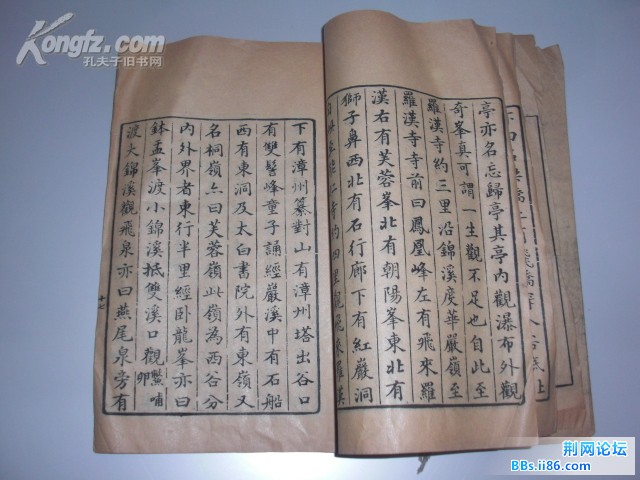 Kongfz.com
孔夫子旧书网
亭亦名忘歸亭其亭内觀瀑布外觀
奇峯真可謂一生觀不足也自此至
羅漢寺約三里沿錦溪度華嚴嶺至
羅漢寺寺前曰鳳凰峰左有飛來羅
漢右有芙蓉峯北有朝陽峯東北有
獅子鼻西北有石行廊下有紅嚴洞
下有漳州纂對山有漳州塔出谷口
有雙髻峰童子誦經嚴溪中有石船
西有東洞及太白書院外有東嶺又
名桐嶺亦曰芙蓉嶺此嶺為西谷分
内外界者東行半里經卧龍峯亦曰
鉢盂峯渡小錦溪抵雙溪口觀鷔哺卵
渡大錦溪觀飛泉亦曰燕尾泉旁有
十七
荆网论坛
BBs.ii86.com